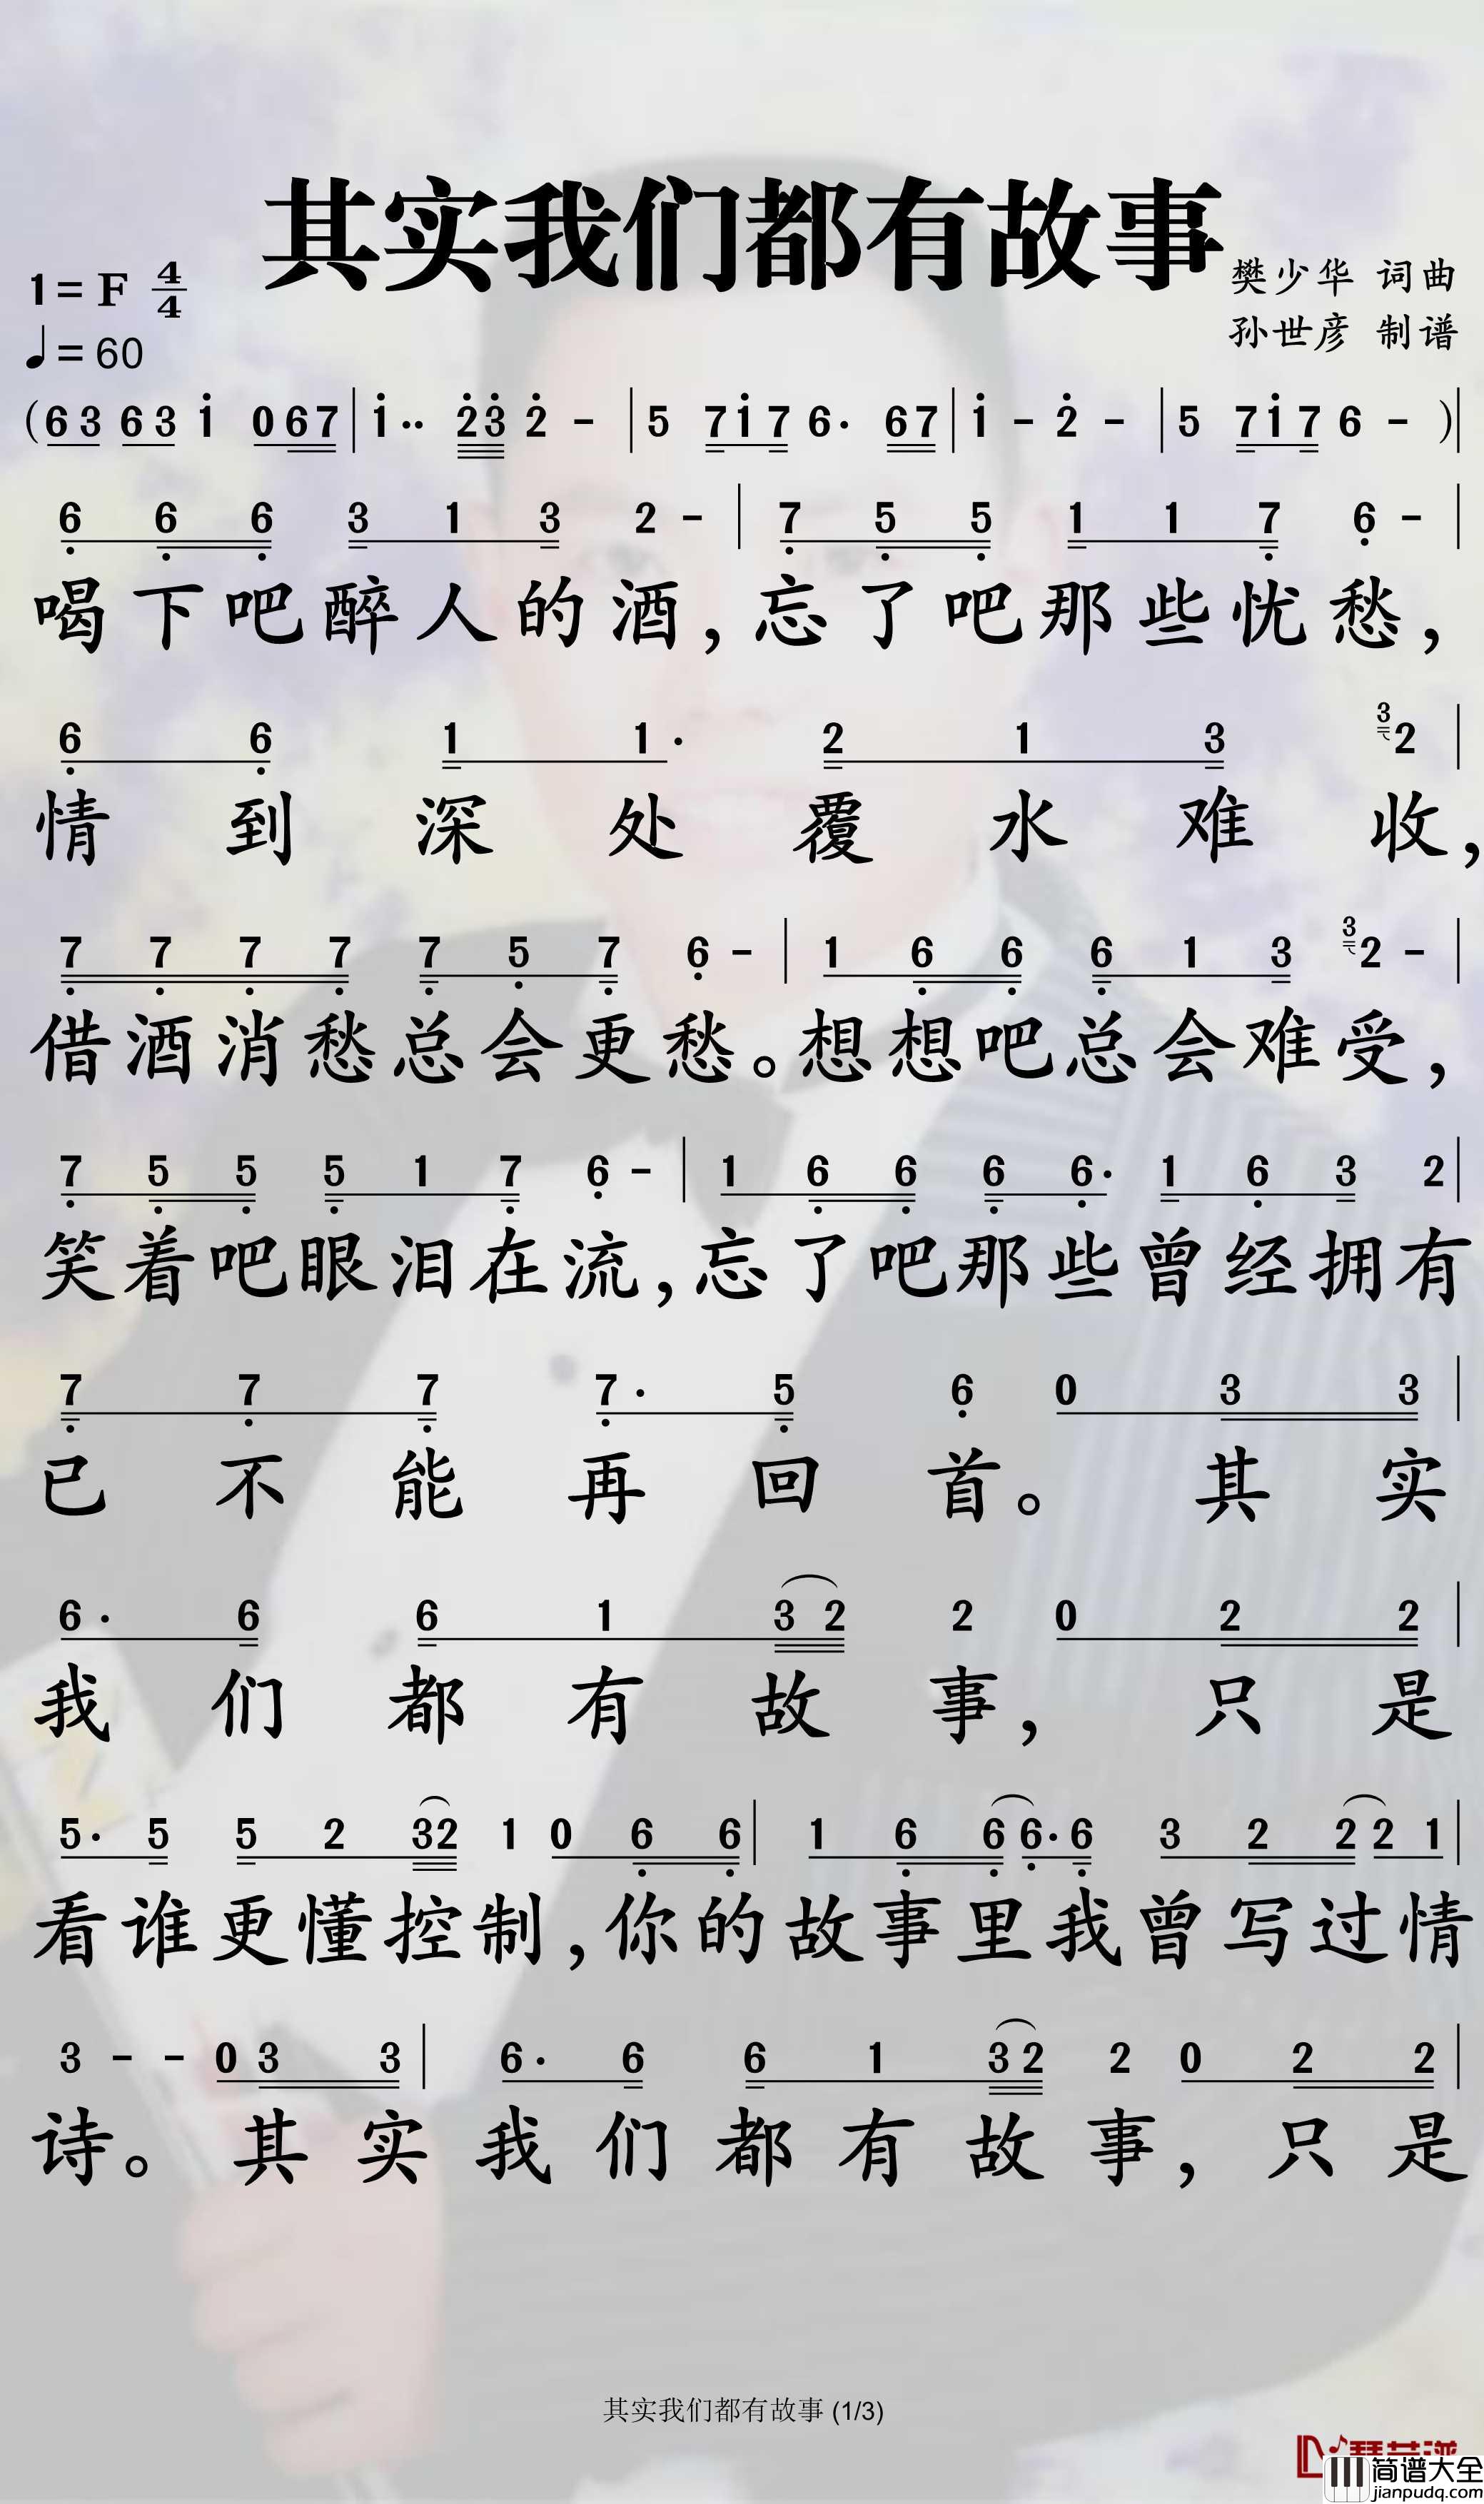 其实我们都有故事
1=F 4/4
樊少华 词曲
♩=60
孙世彦 制谱
(63 63 1 067|1·· 23 2 -|5 717 6· 67|1 - 2 -|5 717 6 -)|
6 6 6 3 1 3 2 -|7 5 5 1 1 7 6 -|
喝下吧醉人的酒,忘了吧那些忧愁,
6 6 1 1· 2 1 3 3 2|
情到深处覆水难收,
7 7 7 7 7 5 7 6 -|1 6 6 6 1 3 3 2 -|
借酒消愁总会更愁。想想吧总会难受,
7 5 5 5 1 7 6 -|1 6 6 6 6· 1 6 3 2|
笑着吧眼泪在流,忘了吧那些曾经拥有
7 7 7 7· 5 6 0 3 3|
已不能再回首。其实
6· 6 6 1 3 2 2 0 2 2|
我们都有故事,只是
5· 5 5 2 32 1 0 6 6|1 6 6 6· 6 3 2 2 2 1|
看谁更懂控制,你的故事里我曾写过情
3 - - 0 3 3|6· 6 6 1 3 2 2 0 2 2|
诗。其实我们都有故事,只是
其实我们都有故事 (1/3)
简谱大全
jianpudq.com